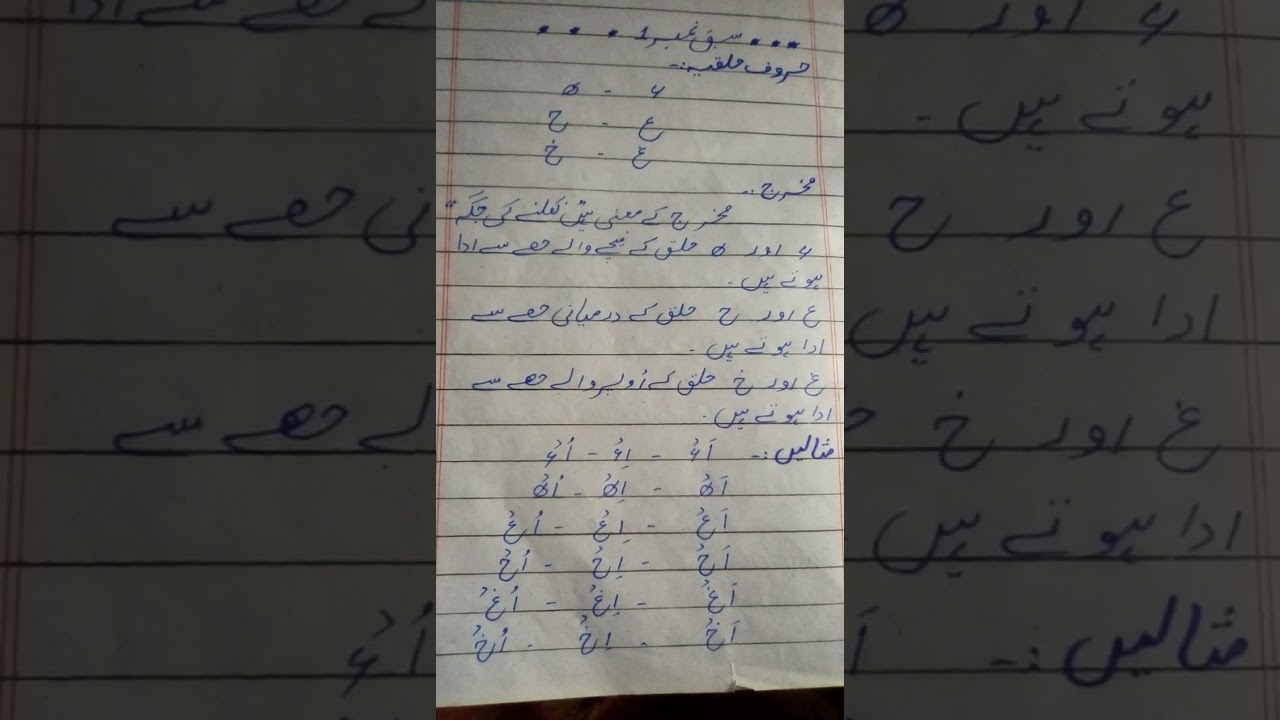 سبق نمبر 1
حروف حلقیہ:-
ء - ہ
ع - ح
غ - خ
مخرج:-
مخرج کے معنی ہیں "نکلنے کی جگہ"
ء اور ہ حلق کے نیچے والے حصے سے ادا
ہوتے ہیں۔
ع اور ح حلق کے درمیانی حصے سے
ادا ہوتے ہیں۔
غ اور خ حلق کے اُوپر والے حصے سے
ادا ہوتے ہیں۔
مثالیں:- اَءْ - اِءْ - اُءْ
اَہْ - اِہْ - اُہْ
اَعْ - اِعْ - اُعْ
اَحْ - اِحْ - اُحْ
اَغْ - اِغْ - اُغْ
اَخْ - اِخْ - اُخْ